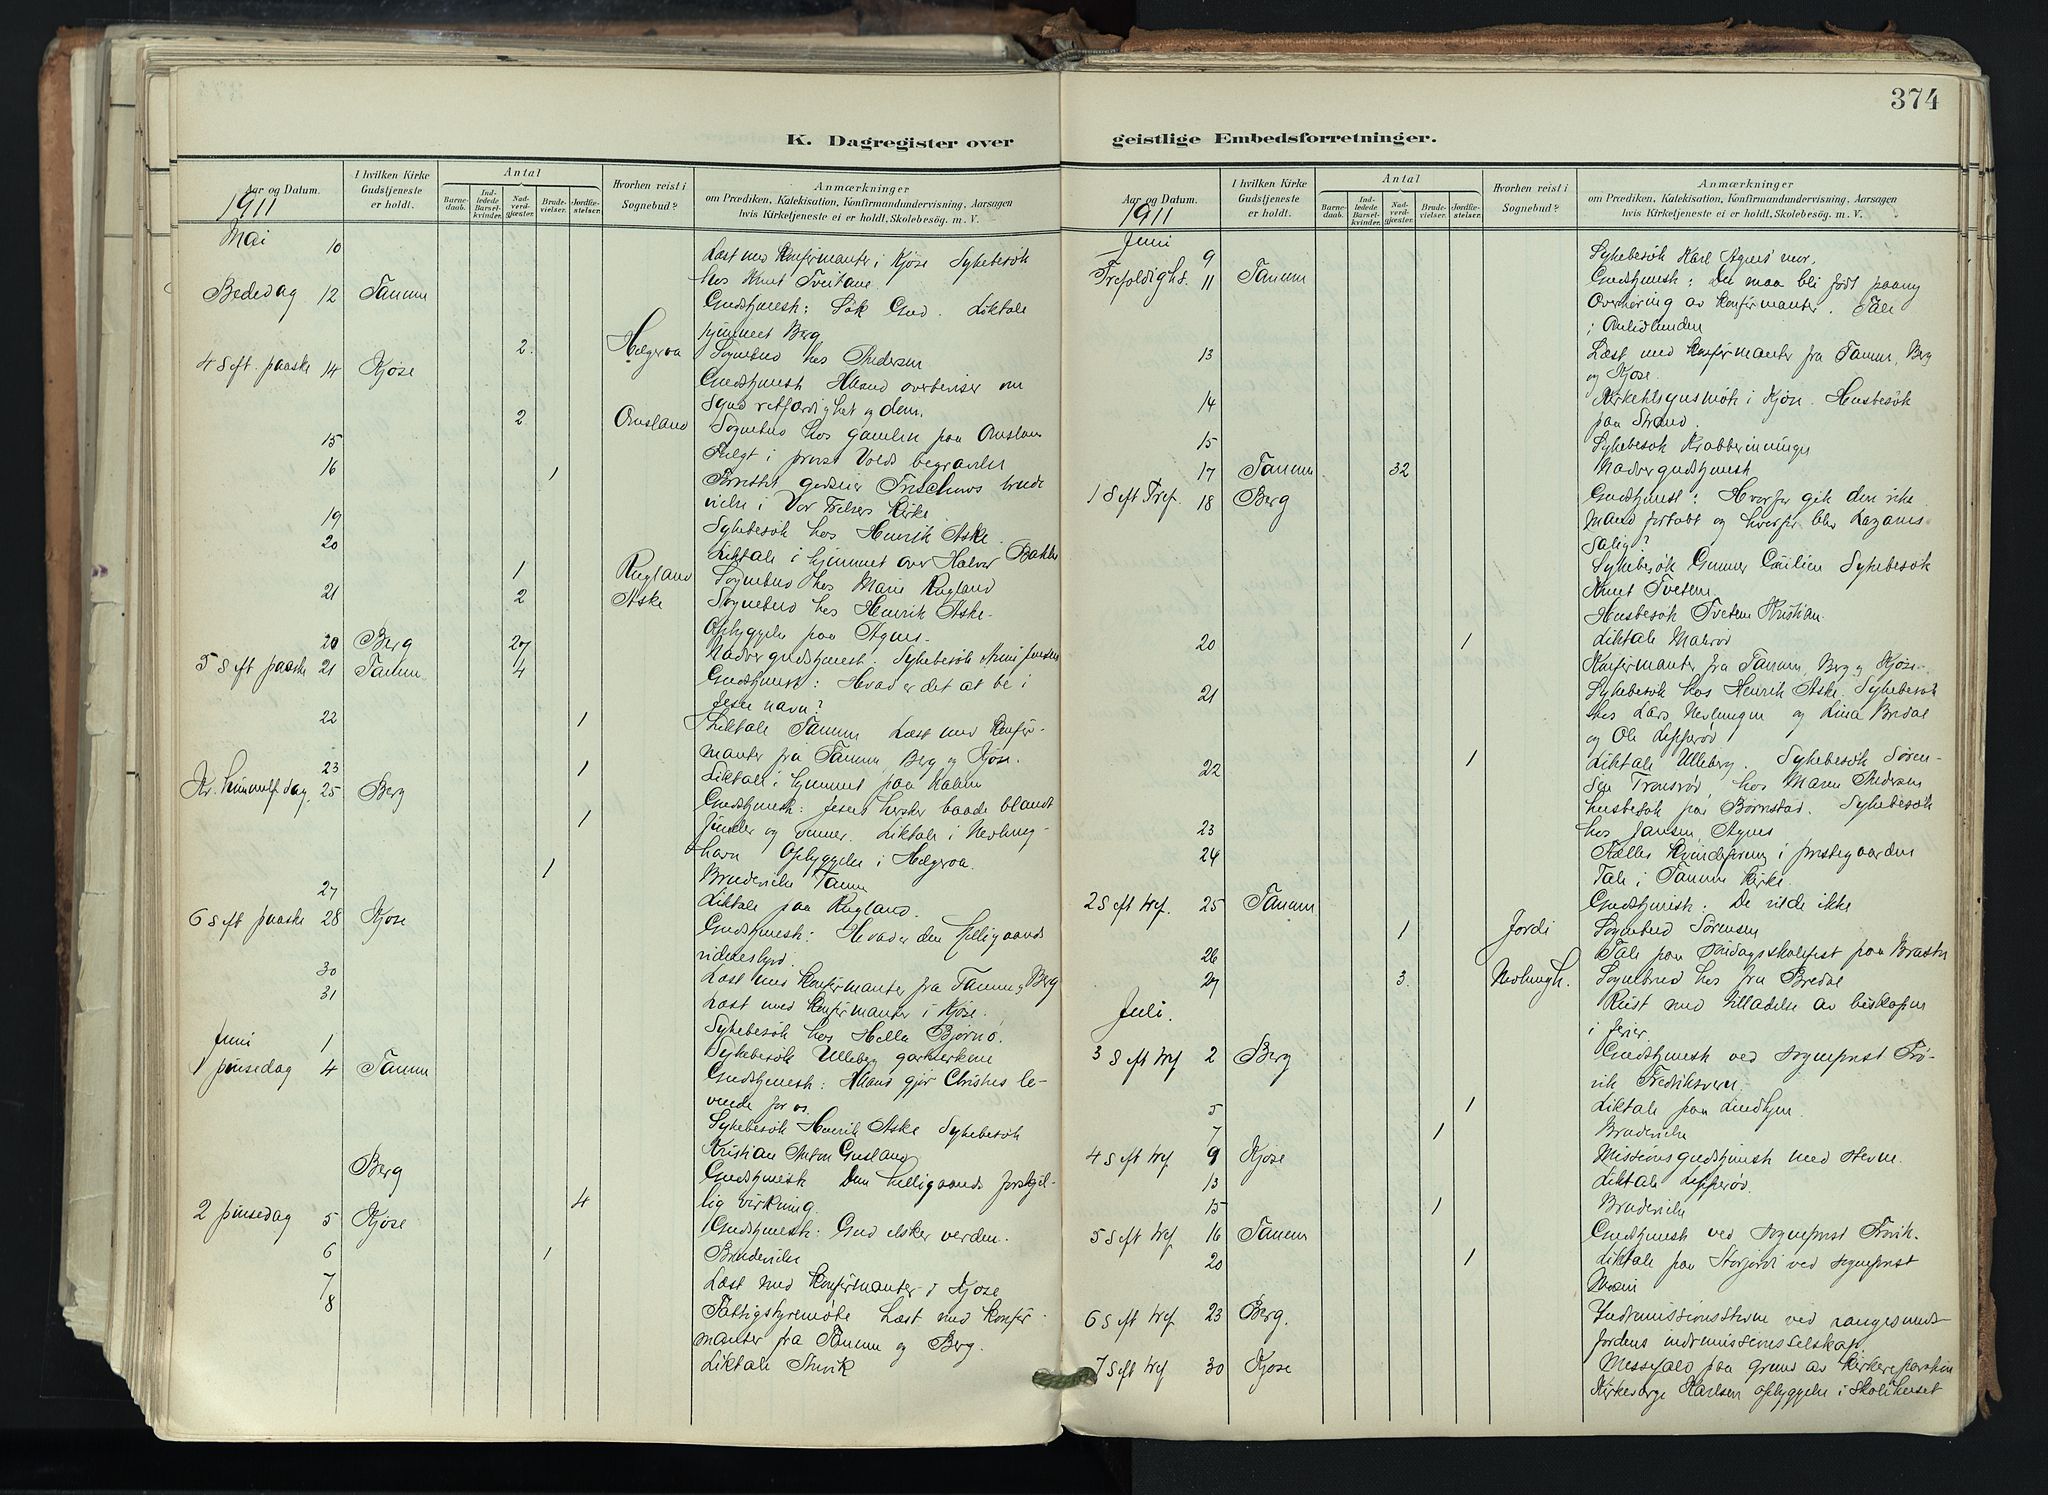 374
K. Dagregister over geistlige Embedsforretninger.
Aar og Datum.
I hvilken Kirke Gudstjeneste er holdt.
Antal
Barne-daab.
Ind-ledede Barsel-kvinder.
Nad-verd-gjæster.
Brude-vielser.
Jordfæ-stelser.
Hvorhen reist i Sognebud?
Anmærkninger
om Prædiken, Katekisation, Konfirmandundervisning, Aarsagen
hvis Kirketjeneste ei er holdt, Skolebesøg. m. V.
1911
Mai 10 Læst med konfirmanter i Kjøse Sykebesøk
hos Knut Tveitane.
Bededag 12 Tanum Gudstjenest: Søk Gud. Liktale
hjemmet Berg
2. Helgeroa Sognebud hos Andersen
4 S eft. paaske 14 Kjøse Gudstjenest Aand overbeviser om
synd retfærdighet og dom.
2 Omsland Sognebud hos gamlen paa Omsland
15 Fulgt i prost Volds begravelse
16 1 Forrettet godseier Treschows brude
vielse i Vor Frelsers kirke
19 Sykebesøk hos Henrik Aske.
20 Liktale i hjemmet over Halvor Bakke
1 Rugland Sognebud hos Marie Rugland
21 2 Aske Sognebud hos Henrik Aske.
Opbyggelse paa Agnes.
20 Berg 27 Nadvergudstjenest. Sykebesøk
5 S eft paaske 21 Tanum 4 Gudstjenest: Hvad er det at be i
Jesu navn?
22 1 Liktale Tanum Læst med konfir-
manter fra Tanum, Berg og Kjøse.
23 1 Liktale i hjemmet paa
Kr. himmelf dag 25 Berg Gudstjenest: Jesus hersker baade blandt
1 fiender og venner. Liktale i Nevlung-
havn Opbyggelse i Helgeroa.
1 Brudevielse Tanum
27 Liktale paa Rugland.
6 S eft paaske 28 Kjøse Gudstjenest: Hvad er den helligaands
vidnesbyrd.
30 Læst med konfirmanter fra Tanum og Berg
31 Læst med konfirmanter i Kjøse.
Juni 1 Sykebesøk hos Hella Bjørnø.
Sykebesøk Ulleberg
1 pinsedag 4 Tanum Gudstjenest: Aand gjør Christus le-
vende for os.
Sykebesøk Henrik Aske Sykebesøk
Kristian Anton Gusland
Berg Gudstjenest Den helligaands forskjel-
4 lig virkning.
2 pinsedag 5 Kjøse Gudstjenest: Gud elsker verden.
6 1 Brudevielse
7 Læst med konfirmanter i Kjøse
8 Fattigstyremøte Læst med konfir-
manter fra Tanum og Berg.
Liktale
Aar og Datum.
I hvilken Kirke Gudstjeneste er holdt.
Antal
Barne-daab.
Ind-ledede Barsel-kvinder.
Nad-verd-gjæster.
Brude-vielser.
Jordfæ-stelser.
Hvorhen reist i Sognebud?
Anmærkninger
om Prædiken, Katekisation, Konfirmandundervisning, Aarsagen
hvis Kirketjeneste ei er holdt, Skolebesøg. m. V.
1911
Juni 9 Sykebesøk Karl Agnes' mor.
Trefoldighd. 11 Tanum Gudstjenest: Du maa bli født paany
Overhøring av konfirmanter. Tale
i Omlidlunden
13 Læst med konfirmanter fra Tanum, Berg
og Kjøse.
14 Kirketilsynsmøte i Kjøse. Husbesøk
paa Strand.
15 Sykebesøk
17 Tanum 32 Nadvergudstjenest
1 S eft Tref. 18 Berg Gudstjenest: Hvorfor gik den rike
mand fortabt og hvorfor blev Lazarus
salig?
Sykebesøk Gunner Sykebesøk
Knut Tveten.
Husbesøk Tveten Kristian.
20 1 Liktale Malerød
Konfirmanter fra Tanum, Berg og Kjøse.
21 Sykebesøk hos Henrik Aske. Sykebesøk
hos Lars Nevlungen og Lina Bredal
og Ole Lefferød
22 1 Liktale Ulleberg. Sykebesøk Søren-
sen Tronsrød, hos Maren Andersen
husbesøk paa Børnstad. Sykebesøk
23 hos Jansen Agnes
24 Fælles kvindeforening i prestegaarden
Tale i Tanum kirke.
2 S eft tref. 25 Tanum Gudstjenest: De vilde ikke
1 Jordi Sognebud Sørensen
26 Tale paa søndagsskolefest paa
27 3. Nevlungh. Sognebud hos fru Bredal
Juli. Reist med tilladelse av biskopen
i ferier.
3 S eft tref 2 Berg Gudstjenest ved sogneprest Frø-
vik Fredriksvern.
5 1 Liktale paa Lindhjem.
7 1 Brudevielse
4 S eft tref 9 Kjøse Missionsgudstjenest med stevne.
13 Liktale Lefferød.
15 1 Brudevielse
5 S eft tref 16 Tanum Gudstjenest ved sogneprest Frøvik.
20 1 Liktale paa Storjordi ved sogneprest
6 S eft tref. 23 Berg. Indremissionsstevne ved Langesunds-
fjordens indremissionsselskap.
7 S eft tref 30 Kjøse Messefald paa grund av kirkereparation
Kirkesanger Karlsen opbyggelse i skolehuset